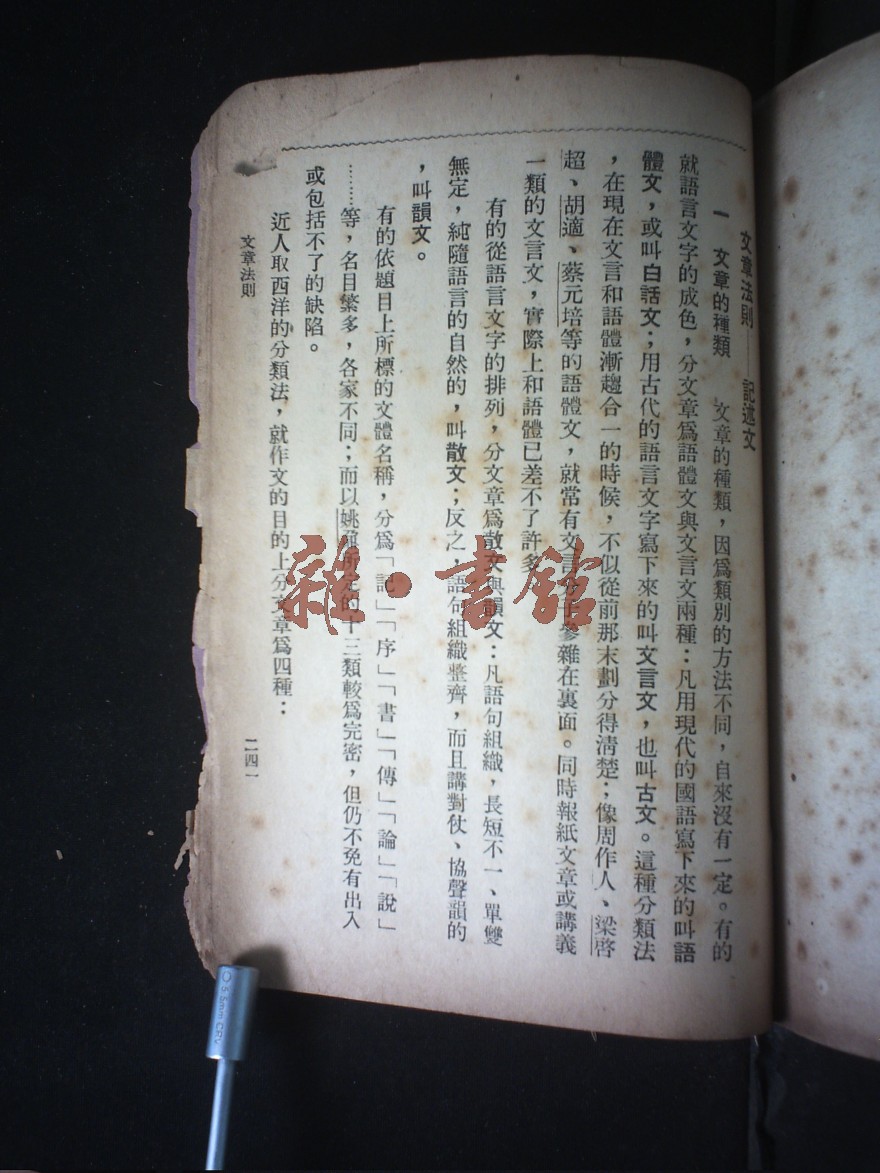 文章法則——記述文
一　文章的種類　文章的種類，因爲類別的方法不同，自來沒有一定。有的
就語言文字的成色，分文章爲語體文與文言文兩種：凡用現代的國語寫下來的叫語
體文，或叫白話文；用古代的語言文字寫下來的叫文言文，也叫古文。這種分類法
，在現在文言和語體漸趨合一的時候，不似從前那末劃分得淸楚；像周作人、梁啓
超、胡適、蔡元培等的語體文，就常有文言分子參雜在裏面。同時報紙文章或講義
一類的文言文，實際上和語體已差不了許多。
有的從語言文字的排列，分文章爲散文與韻文：凡語句組織，長短不一、單雙
無定，純隨語言的自然的，叫散文；反之，語句組織整齊，而且講對仗、協聲韻的
，叫韻文。
有的依題目上所標的文體名稱，分爲「記」「序」「書」「傳」「論」「說」
……等，名目繁多，各家不同；而以姚鼐所定的十三類較爲完密，但仍不免有出入
或包括不了的缺陷。
近人取西洋的分類法，就作文的目的上分文章爲四種：
文章法則
二四一
雜·書館
0.5mm CRV